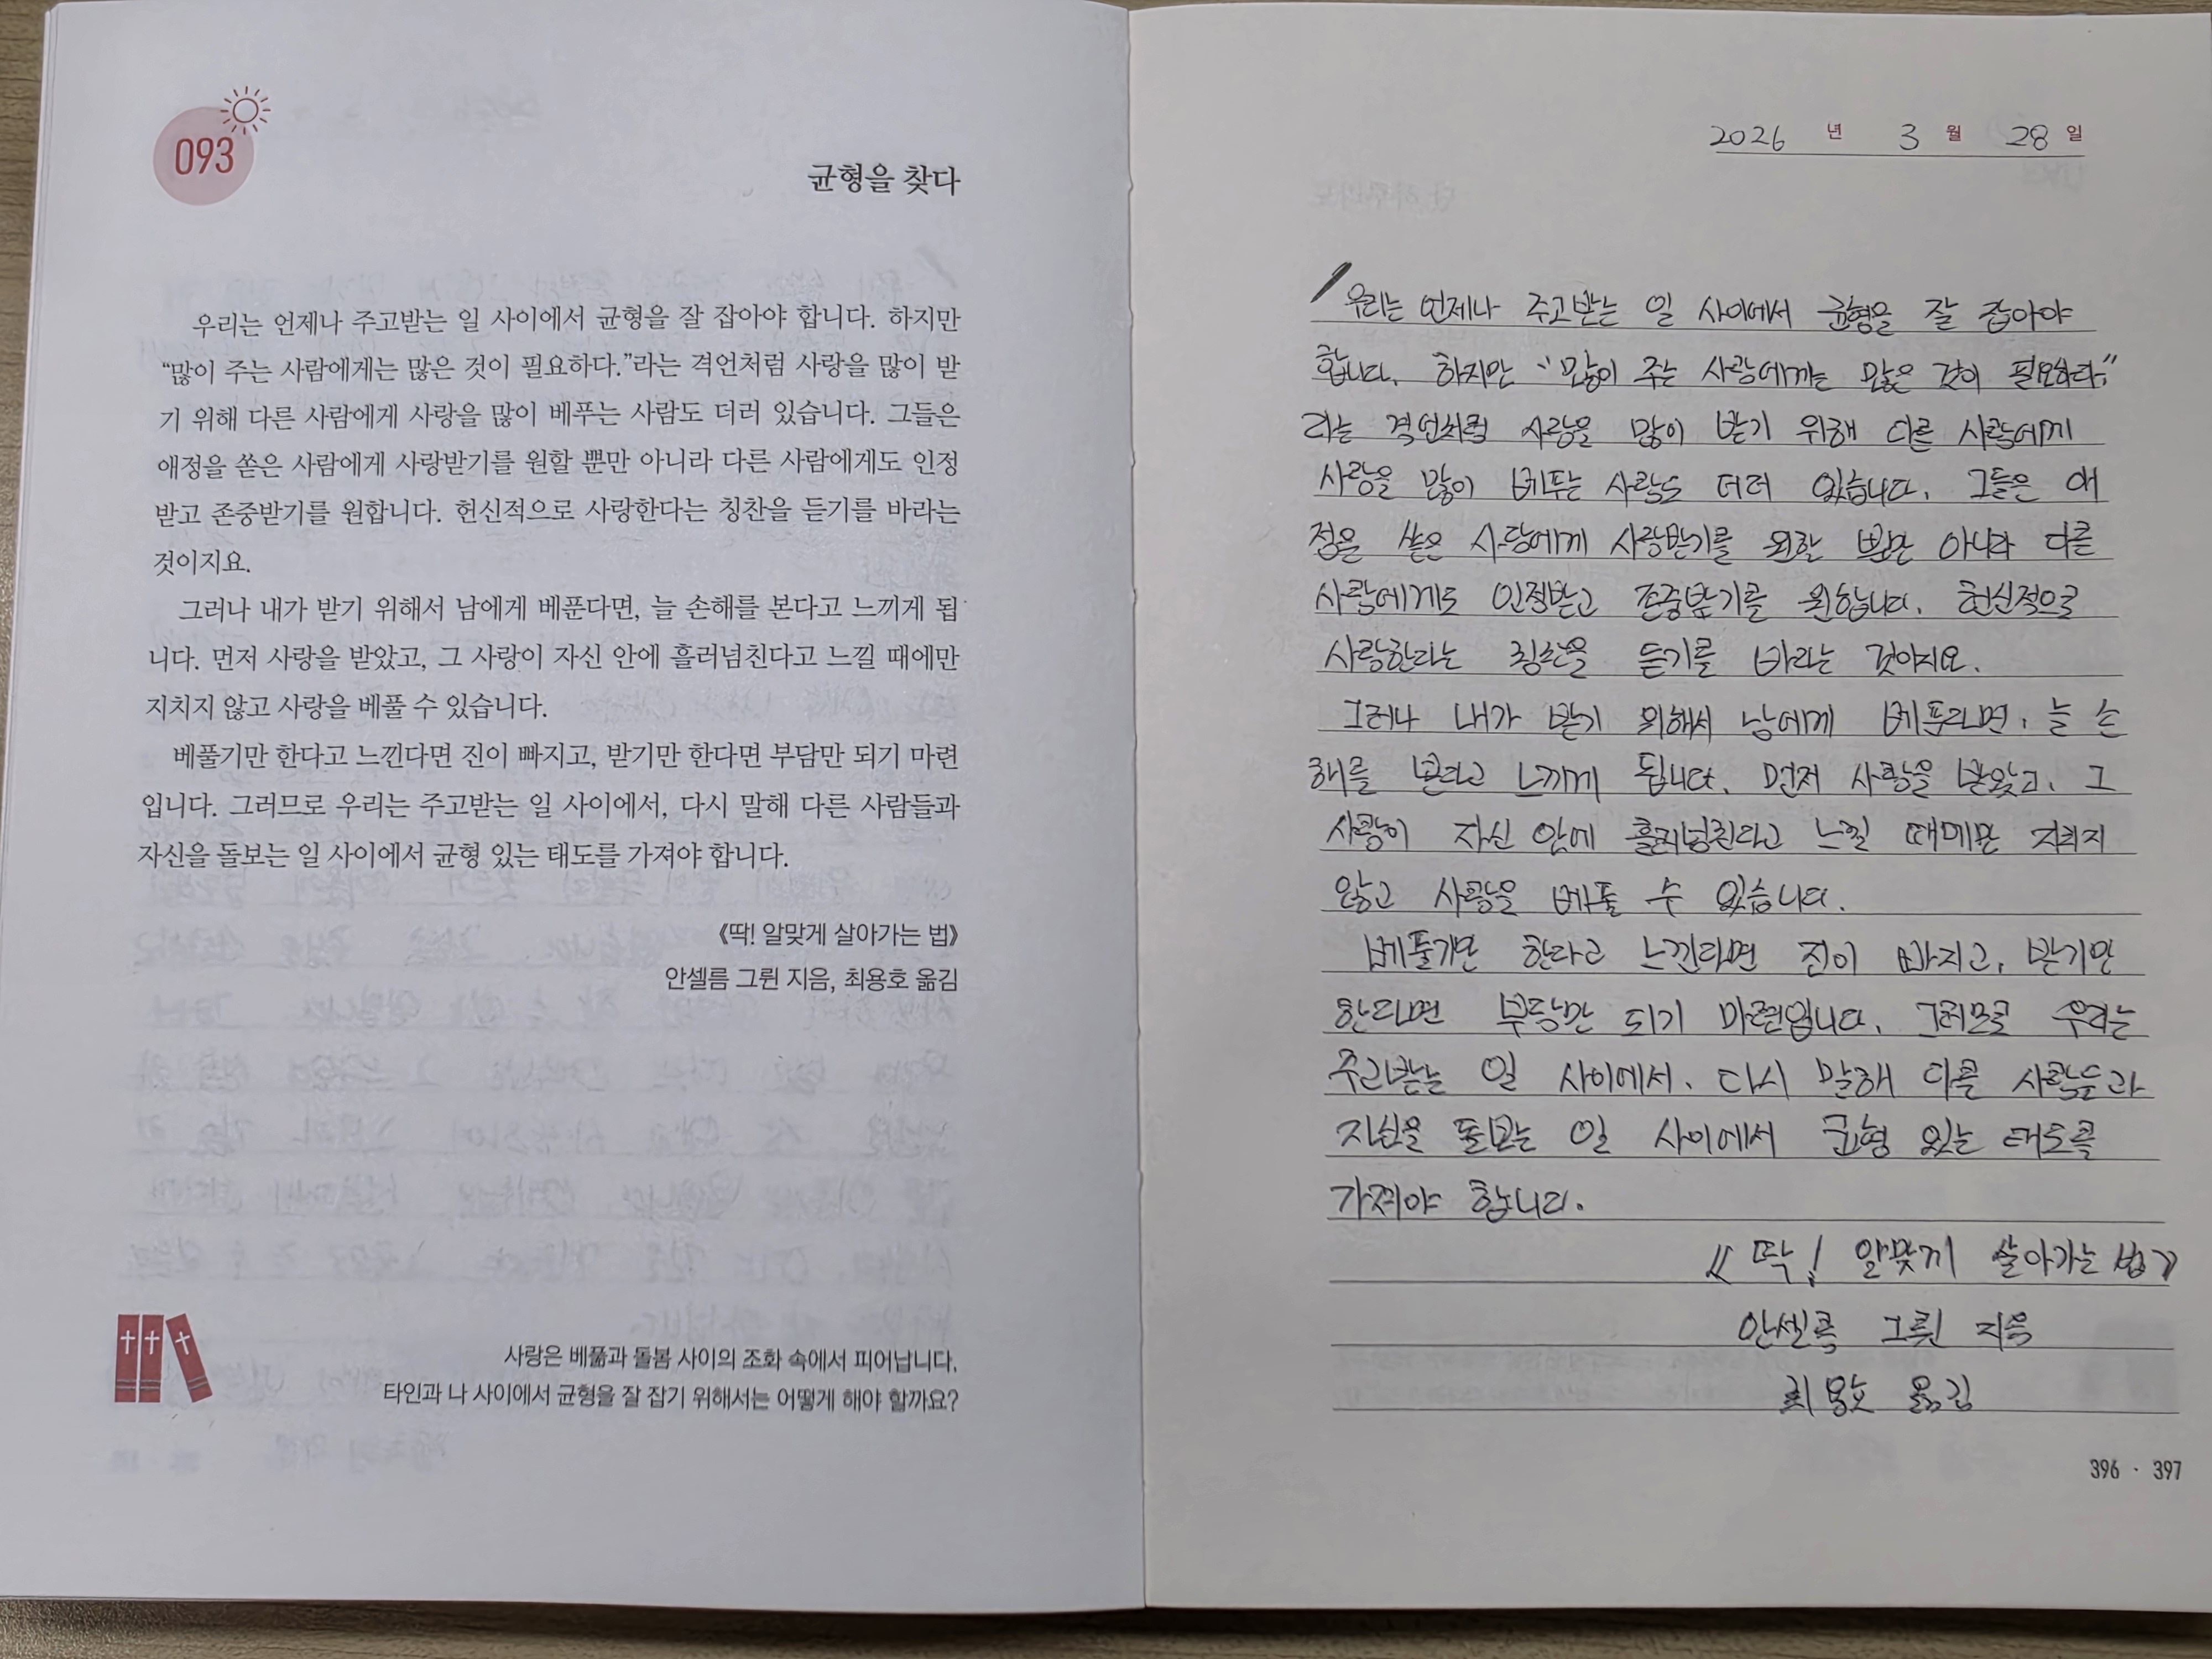 093
균형을 찾다
우리는 언제나 주고받는 일 사이에서 균형을 잘 잡아야 합니다. 하지만
“많이 주는 사람에게는 많은 것이 필요하다.”라는 격언처럼 사랑을 많이 받
기 위해 다른 사람에게 사랑을 많이 베푸는 사람도 더러 있습니다. 그들은
애정을 쏟은 사람에게 사랑받기를 원할 뿐만 아니라 다른 사람에게도 인정
받고 존중받기를 원합니다. 헌신적으로 사랑한다는 칭찬을 듣기를 바라는
것이지요.
그러나 내가 받기 위해서 남에게 베푼다면, 늘 손해를 본다고 느끼게 됩
니다. 먼저 사랑을 받았고, 그 사랑이 자신 안에 흘러넘친다고 느낄 때에만
지치지 않고 사랑을 베풀 수 있습니다.
베풀기만 한다고 느낀다면 진이 빠지고, 받기만 한다면 부담만 되기 마련
입니다. 그러므로 우리는 주고받는 일 사이에서, 다시 말해 다른 사람들과
자신을 돌보는 일 사이에서 균형 있는 태도를 가져야 합니다.
《딱! 알맞게 살아가는 법》
안셀름 그륀 지음, 최용호 옮김
사랑은 베풂과 돌봄 사이의 조화 속에서 피어납니다.
타인과 나 사이에서 균형을 잘 잡기 위해서는 어떻게 해야 할까요?
2026 년 3 월 28 일
우리는 언제나 주고받는 일 사이에서 균형을 잘 잡아야
합니다. 하지만 “많이 주는 사람에게는 많은 것이 필요하다.”
라는 격언처럼 사랑을 많이 받기 위해 다른 사람에게
사랑을 많이 베푸는 사람도 더러 있습니다. 그들은 애
정을 쏟은 사람에게 사랑받기를 원할 뿐만 아니라 다른
사람에게도 인정받고 존중받기를 원합니다. 헌신적으로
사랑한다는 칭찬을 듣기를 바라는 것이지요.
그러나 내가 받기 위해서 남에게 베푼다면, 늘 손
해를 본다고 느끼게 됩니다. 먼저 사랑을 받았고, 그
사랑이 자신 안에 흘러넘친다고 느낄 때에만 지치지
않고 사랑을 베풀 수 있습니다.
베풀기만 한다고 느낀다면 진이 빠지고, 받기만
한다면 부담만 되기 마련입니다. 그러므로 우리는
주고받는 일 사이에서, 다시 말해 다른 사람들과
자신을 돌보는 일 사이에서 균형 있는 태도를
가져야 합니다.
《딱! 알맞게 살아가는 법》
안셀름 그륀 지음
최용호 옮김
396 · 397